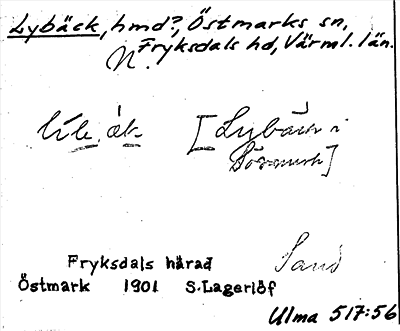 Lybäck, hmd?, Östmarks sn,
Fryksdals hd, Värml. län.
N.
[Lybäck i
Fryksdals härad
Östmark 1901 S.Lagerlöf
Ulma 517:56